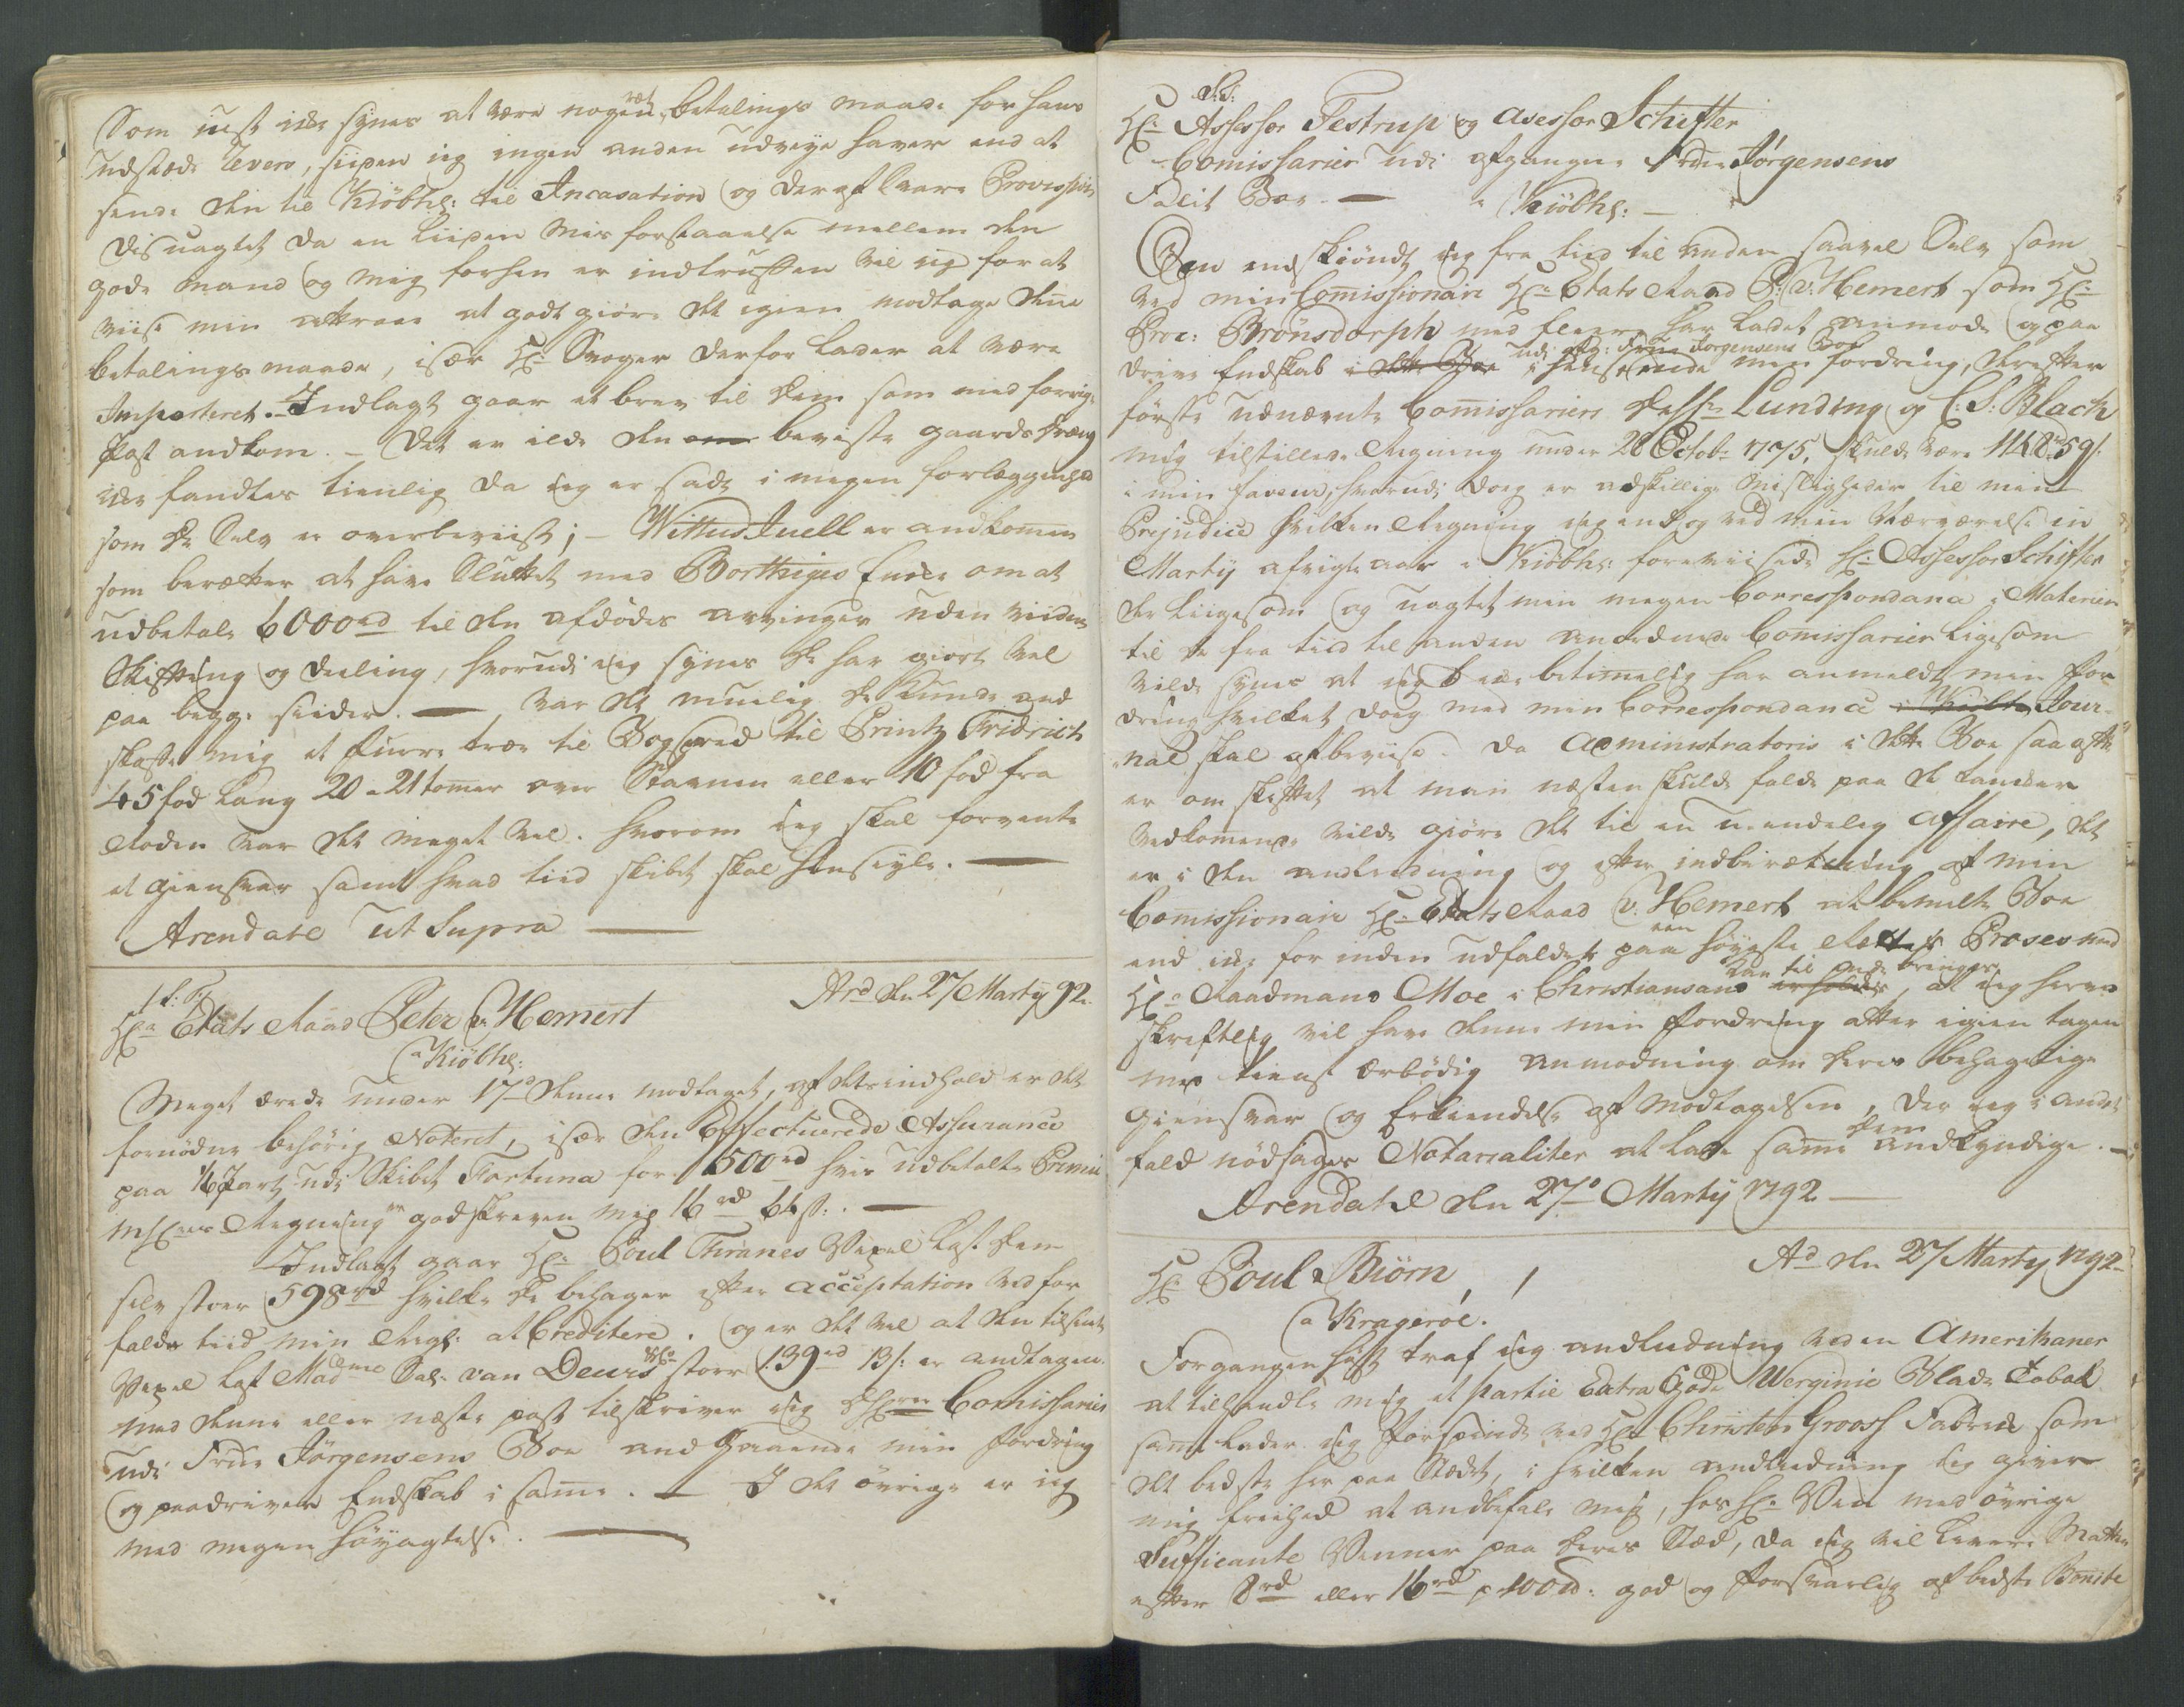 Som iust icke synes at være nogen ræt betalings maade for hans
udstæde Revers, siiden ieg ingen anden udveye haver end at
sende den til Kiöbhs: til Incasation og deraf svare Provission
Disuagtet da en liiden Misforstaaelse mellem den
gode mand og mig forhen er indtruffen vil ieg for at
viise min attraae at godtgiöre det igien modtage denne
betalings maade, især Hr. Svoger derfor lader at være
Importeret. - Indlagt gaar et brev til dem som med forrige
Post andkom. - Det er ilde den omr beviste gaards dræng
icke fandtes tienlig da ieg er sadt i megen forlæggenhed
som De Selv er overbeviist; - Wittus Juell er andkommen
som beretter at have Sluttet med Borthiges Encke om at
udbetale 6000rd til den afdödes arvinger uden viidere
Skiftning og deeling, hvorudi ieg synes De har giort vel
paa begge siider. — var det muelig De kunde and
skaffe mig et fuure træ til Bogspred til Printz Fridrich
45 fod lang 20 a 21 tomer over Stavnen eller 10 fod fra
Roden var det meget vel. hvorom ieg skal forvente
et giensvar samt hvad tiid skibet skal henseyle. —
Arendahl ut Supra —
S: T:
Ard den 27 Martij 92.
Hr Etats Raad Peter v. Hemert
a Kiöbhs:
Meget ærede under 17d denne modtaget, af dets indhold er det
fornödne behörig Noteret, især den Effectuerede Assurance
paa 1/6 Part udi Skibet Fortuna for 1500rd hvis udbetalte Premie
Regning godskreven mig 16rd 64s: . —
Indlagt gaar Hr. Poul Thranes Vexel last dem
selv stoer 598rd hvilke De behager efter acceptation ved for
falde tiid min Regs: at Creditere. og er det vel at den tilsendte
Vexel last Madme Sal: van Deurs &Co stoor 139rd 13s: er andtagen.
med denne eller næste post tilskriver ieg Comissarier
udi Frue Jörgensens Boe and Gaaende min fordring
og paadriver Endskab i samme. — I det övrige er ieg
med megen höyagtelse. —
S:T:
Hr: Assessor Testrup og Asessor Schifter
Comissarier udi afgangne Frue Jörgensens
Falit Boe — a Kiöbhs: —
Den endskiöndt ieg fra tiid til anden saavel Selv som
ved min Comissionair Hr: Etats Raad P: v: Hemert som Hr:
Proc: Brönsdorph med fleere har ladet anmode og paa
drive Endskab i dette Boe udi afg: Frue Jörgensens Boe i henseende min fordring, derefter
förste udnævnte Comissarier Lunding og C: S: Black
mig tilstillede Regning under 28 Octob: 1775, skulde være 1148rd 59s:
i min faveur, hvorudi dog er adskillige Misligheder til min
Prejudice hvilken Regning ieg endog ved min Nærværelse in
Martij afvigte aar i Kiöbhs: foreviisede Hr: Assessor Schifter
der liigesom og uagtet min megen Correspondance i Materien
til de fra tiid til anden anordnede Comissarier ligesom
vilde synes at ieg icke betimelig har anmeldt min for
dring hvilket dog med min Correspondance i Kiöbh Jour-
nal skal afbeviise. Da Administratoris i dette Boe saa ofte
er omskiftet at man næsten skulde falde paa de tancker
vedkommende vilde giöre det til en uendelig Affaire, det
er i den andledning og efter indberætning af min
Comissionair Hr: Etats Raad v: Hemert at bemelte Boe
end icke for inden udfaldet paa een höyeste Rettes Proces med
Hr: Raadmand Moe i Christiansand erholdes kan til ende bringes, at ieg herved
skriftlig vil have denne min fordring atter igien tagen
med tienst Ærbödig anmodning om Deres behagelige
Giensvar og Erkiendelse af modtagelsen, Der ieg i andet
fald nödsages Notarialiter at lade samme dem andkyndige. —
Arendahl den 27de Martij 1792 —
Ad den 27 Martij 1792
Hr: Poul Biörn,
a Krageröe.
Forgangen höst traf ieg andledning ved en Amerikaner
at tilhandle mig et partie Extra Gode Werginie Blade Tobak
samme lader ieg forspinde ved Hr. Christen Grooss Fabrick som
det bedste her paa Stædet, i hvilken andledning ieg giver
mig friehed at andbefale mig, hos Hr. Ven med övrige
Sufficante Venner paa deres Stæd, da ieg vil levere
efter 8rd eller 16rd p 100 : god og forsvarlig af beste Bonite